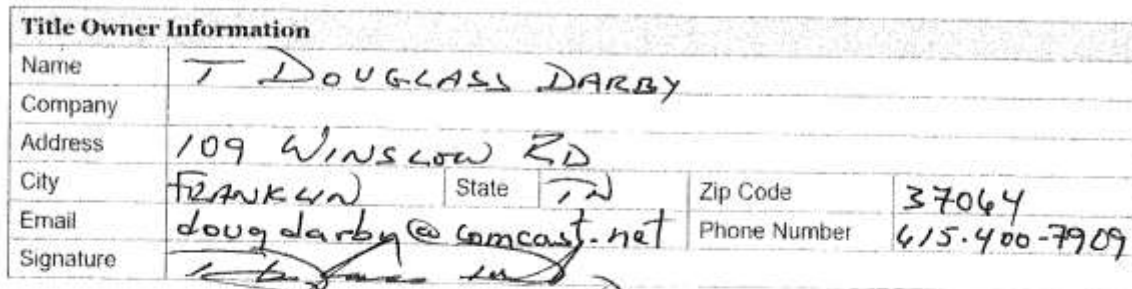 Title Owner Information
Name T DOUGLASS DARBY
Company
Address 109 WINSLOW RD
City FRANKLIN State TN Zip Code 37064
Email dougdarby@comcast.net Phone Number 615-400-7909
Signature